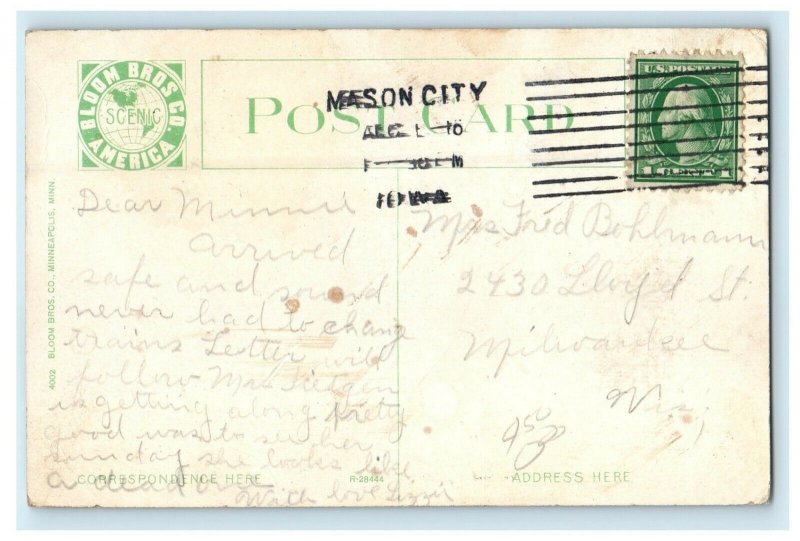 BLOOM BROS CO.
SCENIC
AMERICA
POST CARD
MASON CITY
IOWA
U.S. POSTAGE
1 1
Dear Minnie
arrived
safe and sound
never had to change
trains Letter will
follow Mrs
is getting along pretty
good was to see her
sunday she looks like
a dead one
With love Lizzie
Mrs Fred Bohlmann
2430 Lloyd St.
Milwaukee
Wis,
4002 BLOOM BROS. CO., MINNEAPOLIS, MINN.
CORRESPONDENCE HERE
R-28444
ADDRESS HERE